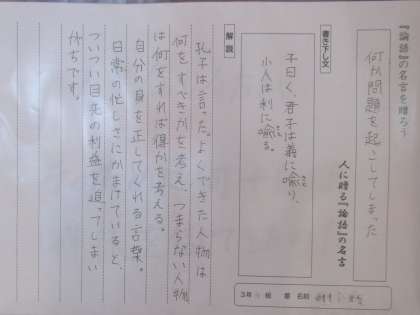 『論語』の名言を贈ろう
何か問題を起こしてしまった
人に贈る『論語』の名言
書き下し文
子曰く、君子は義に喩り、
小人は利に喩る。
解説
孔子は言った。よくできた人物は
何をすべきかを考え、つまらない人物
は何をすれば得かを考える。
自分の身を正してくれる言葉。
日常の忙しさにかまけていると、
ついつい目先の利益を追ってしまい
がちです。
3年 組 番 名前